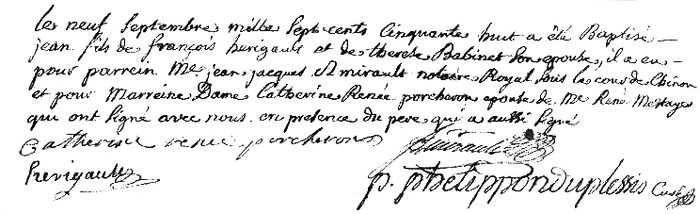 le neuf Septembre mille Sept cents Cinquante huit a été Baptisé
jean fils de françois herigault et de therese Babinet Son epouse, il a eu
pour parrein Me jean jacques Amirault notaire Royal Sous la cour de Chinon
et pour Marreine Dame Catherine Renée porcheron epouse de Me René Metayer
qui ont signé avec nous en presence du pere qui a aussi signé
Catherine renee porcheron Amirault
herigault p. phelippon duplessis Curé